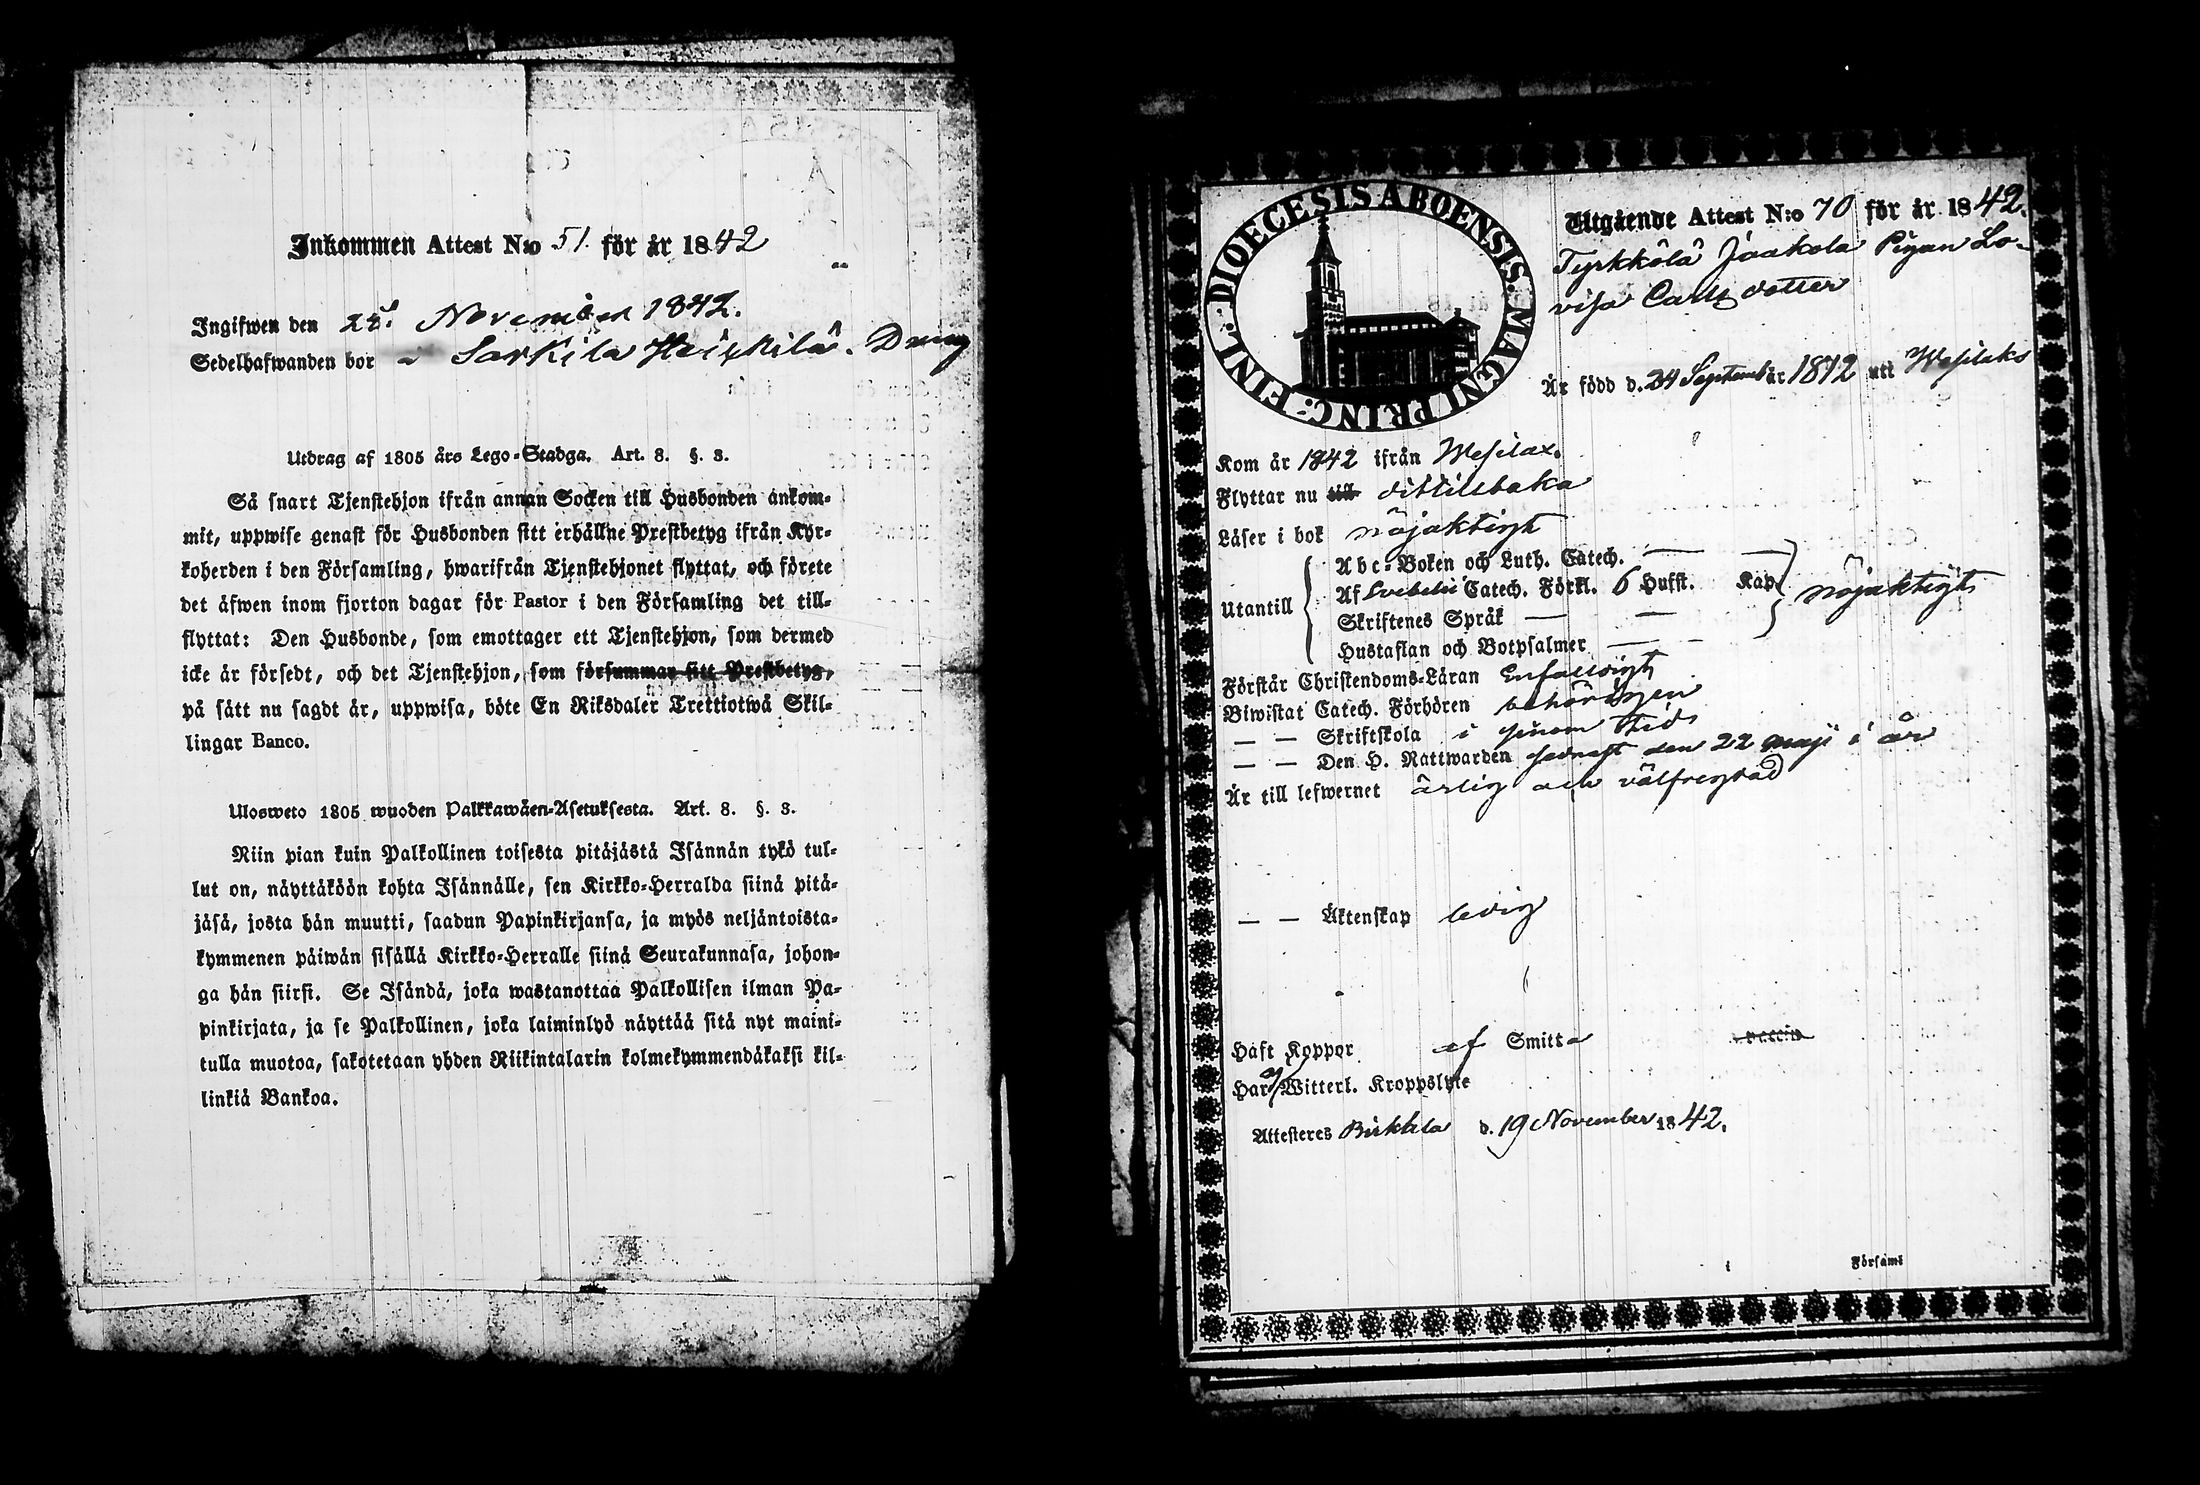 Inkommen Attest N:o 51 för år 1842
Ingifwen den 22 November 1842.
Sedelhafwanden bor i Sarkila Heikkilä.
Utdrag af 1805 års Lego-Stadga. Art. 8. §. 3.
Så snart Tjenstehjon ifrån annan Socken till Husbonden ankom-
mit, uppwise genast för Husbonden sitt erhållne Prestbetyg ifrån Kyr-
koherden i den Församling, hwarifrån Tjenstehjonet flyttat, och förete
det äfwen inom fjorton dagar för Pastor i den Församling det till-
flyttat: Den Husbonde, som emottager ett Tjenstehjon, som dermed
icke är försedt, och det Tjenstehjon, som försummar sitt Prestbetyg,
på sätt nu sagdt är, uppwisa, böte En Riksdaler Trettiotwå Skil-
lingar Banco.
Ulosweto 1805 wuoden Palkkawäen-Asetuksesta. Art. 8. §. 3.
Niin pian kuin Palkollinen toisesta pitäjästä Isännän tykö tul-
lut on, näyttäköön kohta Isännälle, sen Kirkko-Herralda siinä pitä-
jäsä, josta hän muutti, saadun Papinkirjansa, ja myös neljäntoista-
kymmenen päiwän sisällä Kirkko-Herralle siinä Seurakunnasa, johon-
ga hän siirsi. Se Isändä, joka wastanottaa Palkollisen ilman Pa-
pinkirjata, ja se Palkollinen, joka laiminlyö näyttää sitä nyt maini-
tulla muotoa, sakotetaan yhden Riikintalarin kolmekymmendäkaksi kil-
linkiä Bankoa.
DIOECESIS ABOENSIS. MAGNI PRINC: FINL.
Utgående Attest N:o 70 för år 1842.
Tyrkkölä Jaakola Pigan Lo-
visa Carlsdotter
Är född d. 24 September 1812 uti Wesilaks
Kom år 1842 ifrån Wesilax.
Flyttar nu till dit tillbaka
Läser i bok nöjaktigt
Utantill
Abc-Boken och Luth. Catech. — —
Af Svebelii Catech. Förkl. 6 Hufst. Kap. nöjaktigt
Skriftenes Språk — —
Hustaflan och Botpsalmer — —
Förstår Christendoms-Läran Enfaldigt
Biwistat Catech. Förhören behörigen
— — Skriftskola i sinom tid
— — Den H. Nattwarden sednast den 22 maji i år
Är till lefwernet ärlig och välfregdad
— — Äktenskap ledig
Haft Koppor af Smitta vaccin
Har ej Witterl. Kroppslyte
Attesteres Birkkala d. 19 November 1842.
i Församl